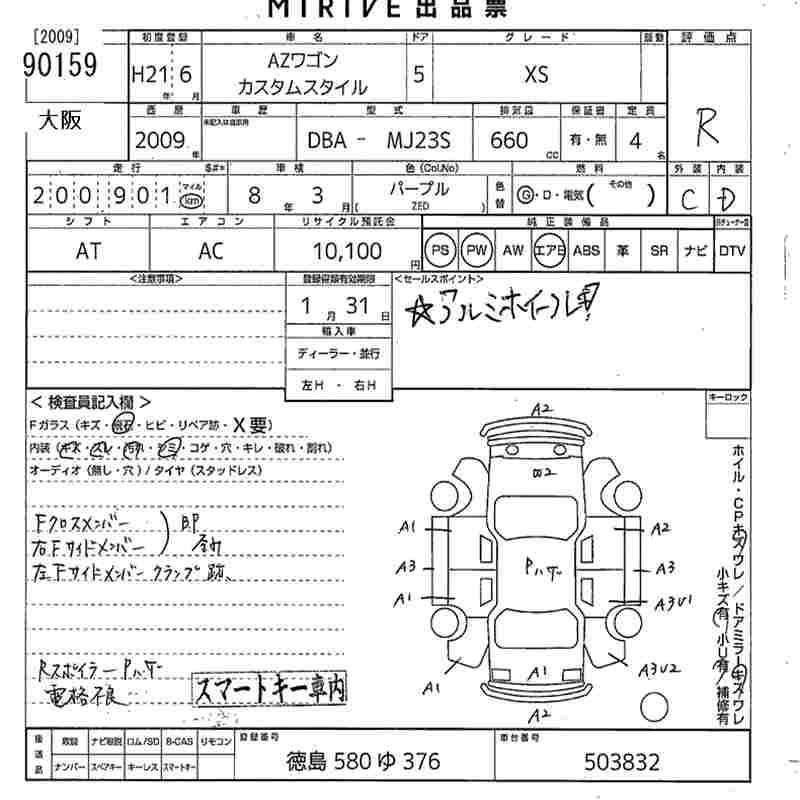 MIRIVE 出品票
[2009]
90159
大阪
初度登録 車名 ドア グレード 評価点
H21 6
年 月
AZワゴン
カスタムスタイル
5
XS
R
西暦 車歴 型式 排気量 保証書 定員
2009 年
未記入は自家用
DBA - MJ23S
660 cc
有・無
4 名
走行 $#* 車検 色(Col.No) 燃料 外装 内装
200901
マイル
km
8 年 3 月
パープル
( ZED )
色替
G・D・電気( その他 )
C D
シフト エアコン リサイクル預託金 純正装備品
AT AC 10,100 円
PS PW AW エアB ABS 革 SR ナビ DTV
<注意事項>
登録書類有効期限
1 月 31 日
輸入車
ディーラー・並行
左H ・ 右H
<セールスポイント>
☆アルミホイール!
<検査員記入欄>
Fガラス(キズ・飛石・ヒビ・リペア跡・X要)
内装(キズ・スレ・汚れ・シミ・コゲ・穴・キレ・破れ・割れ)
オーディオ(無し・穴)/タイヤ(スタッドレス)
Fクロスメンバー
右Fサイドメンバー
左Fサイドメンバー クランプ跡、
Rスポイラー Pハゲ
電格不良
スマートキー車内
キーロック
A2
A1 A2
A3 Pハゲ A3
A1 A3U1
A1 A1 A3U2
A2
ホイル・CPキズウレ/ドアミラーキズワレ
小キズ有/小U有/補修有
後送品
取説 ナビ取説 ロム/SD B-CAS リモコン
ナンバー スペアキー キーレス スマートキー
登録番号
徳島 580 ゆ 376
車台番号
503832